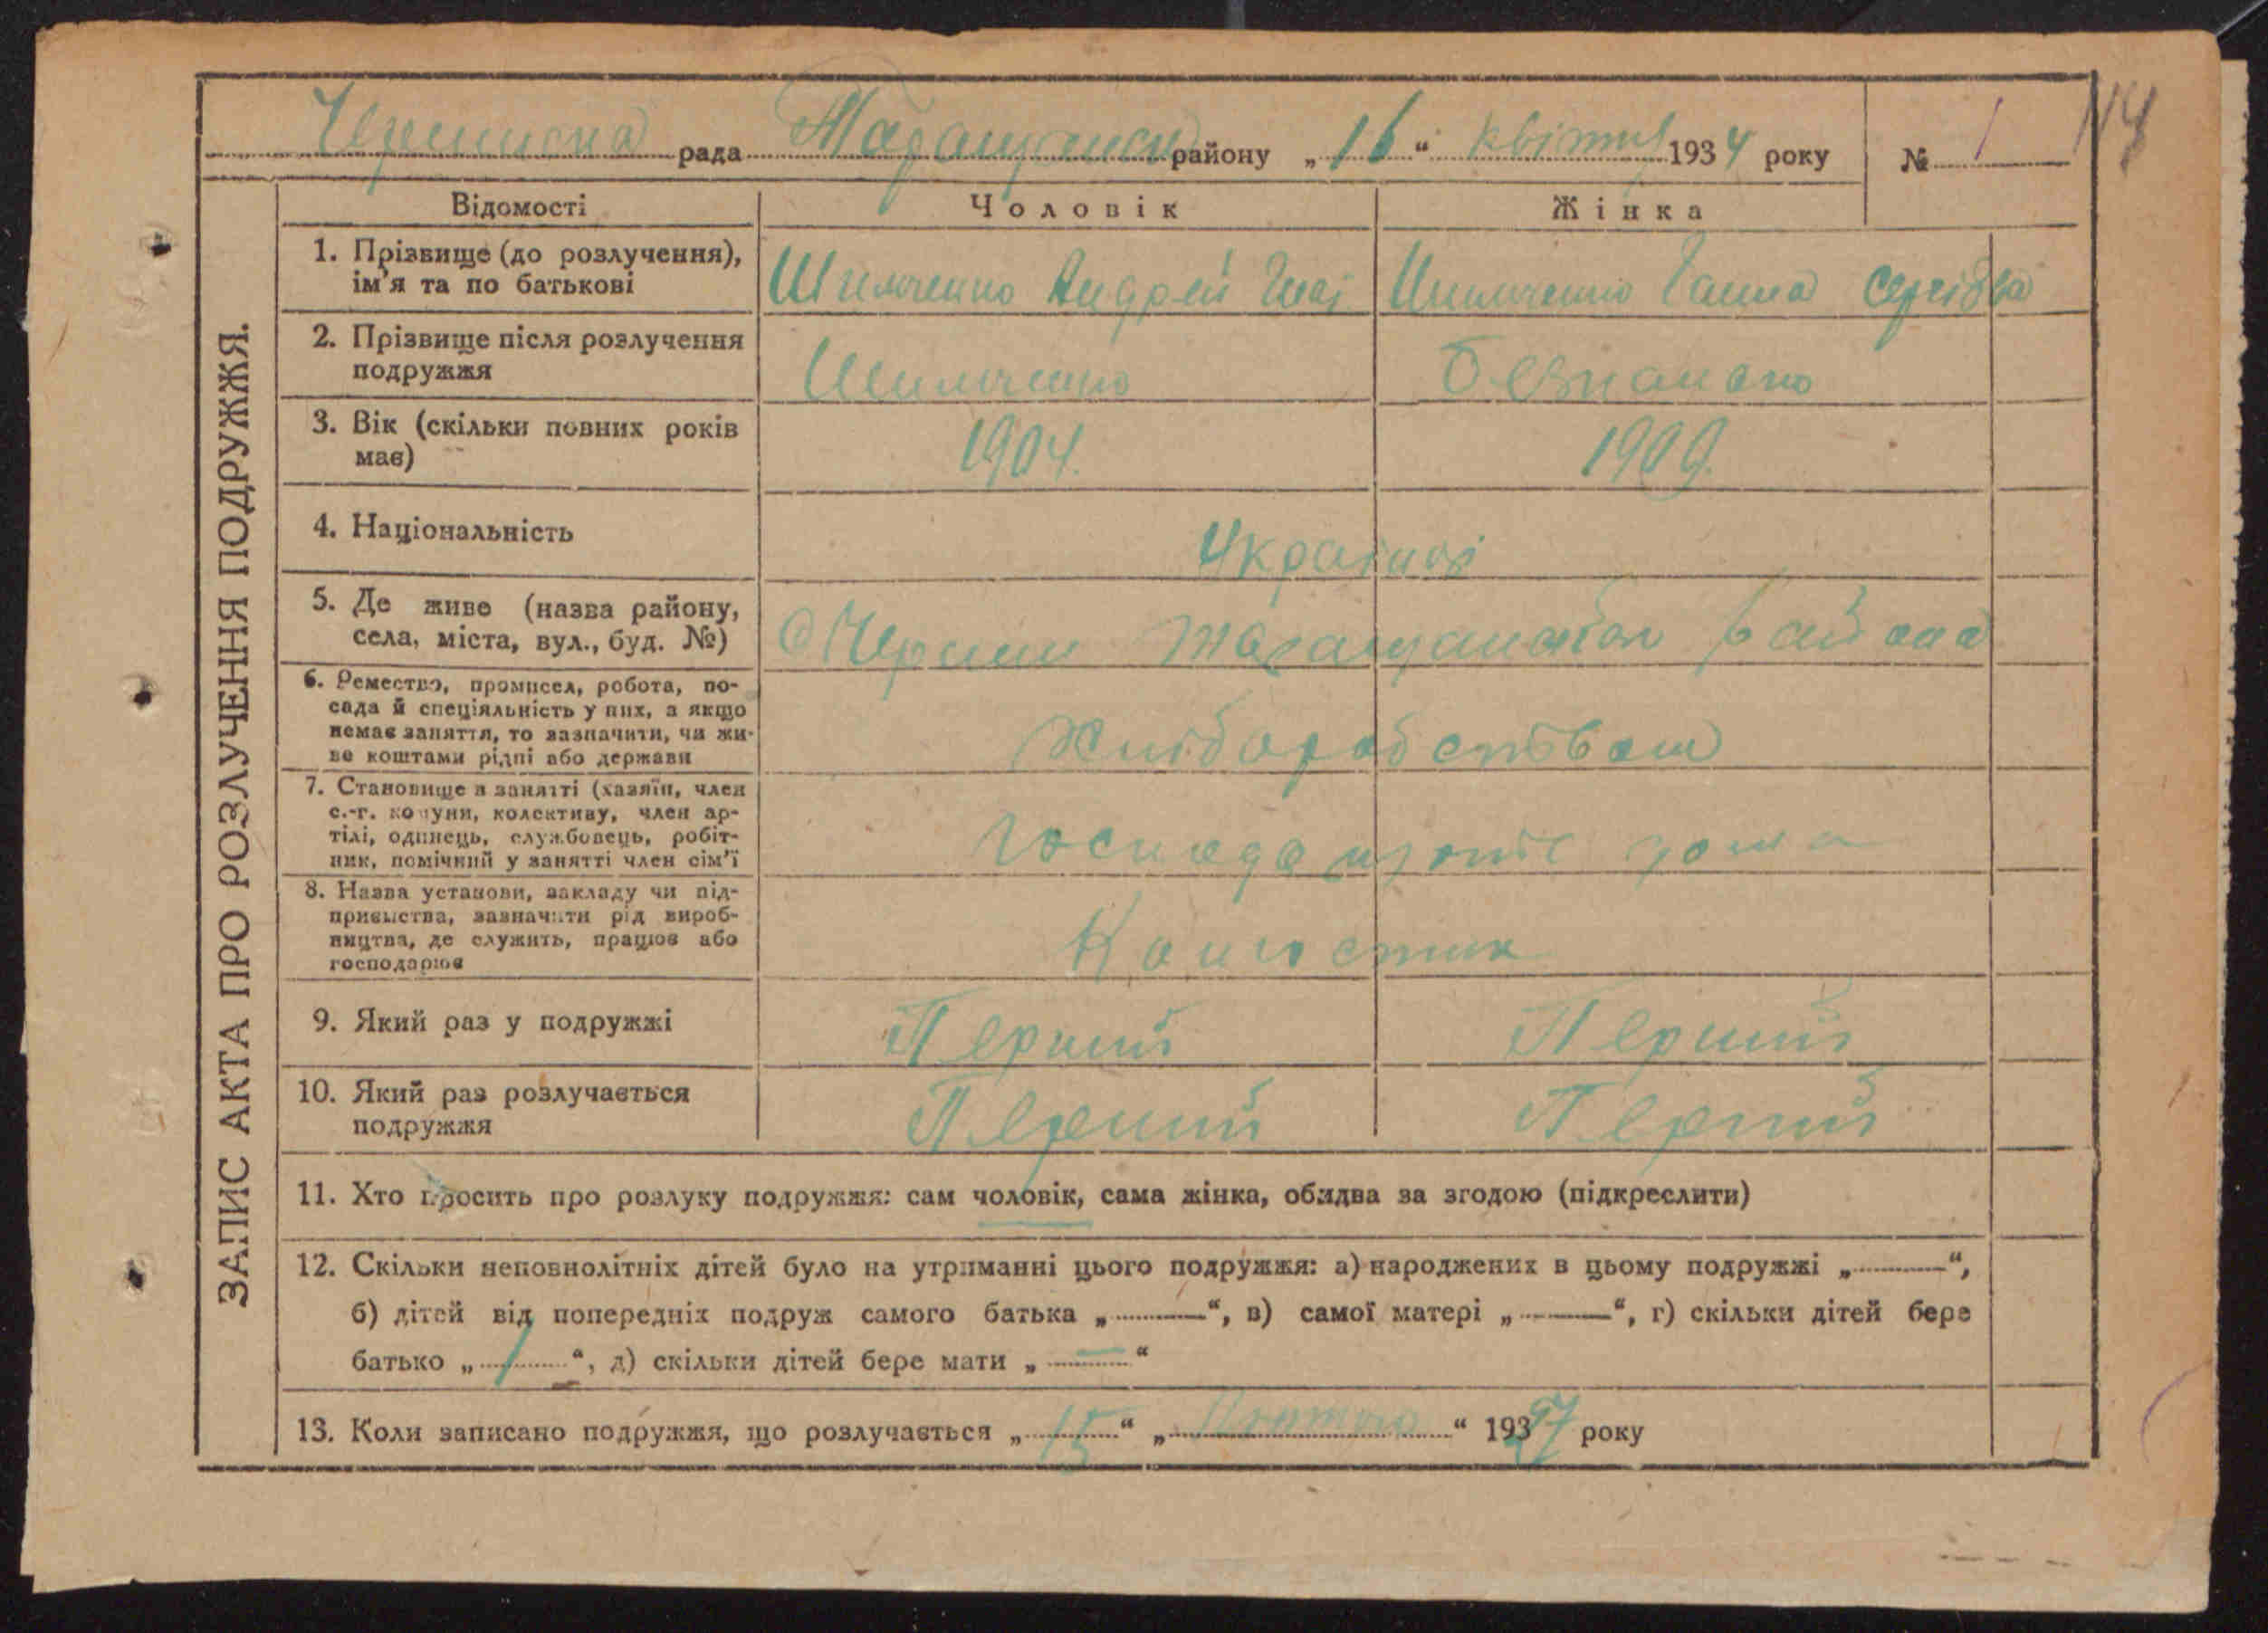 рада Таращанськ району „16“ квітня 1934 року № 1
114
ЗАПИС АКТА ПРО РОЗЛУЧЕННЯ ПОДРУЖЖЯ.
Відомості Чоловік Жінка
1. Прізвище (до розлучення), ім'я та по батькові
Андрей Ганна Сергіївна
2. Прізвище після розлучення подружжя
3. Вік (скільки повних років має)
1904. 1909.
4. Національність
Україна
5. Де живе (назва району, села, міста, вул., буд. №)
района
6. Ремество, промисел, робота, по-
сада й спеціяльність у них, а якщо
немає заняття, то зазначити, чи жи-
ве коштами рідні або держави
Хліборобством
7. Становище в занятті (хазяїн, член
с.-г. комуни, колективу, член ар-
тілі, одинець, службовець, робіт-
ник, помічний у занятті член сім'ї
8. Назва установи, закладу чи під-
приємства, зазначити рід вироб-
ництва, де служить, працює або
господарює
9. Який раз у подружжі
Перший Перший
10. Який раз розлучається подружжя
Перший Перший
11. Хто просить про розлуку подружжя: сам чоловік, сама жінка, обидва за згодою (підкреслити)
12. Скільки неповнолітніх дітей було на утриманні цього подружжя: а) народжених в цьому подружжі „ “,
б) дітей від попередніх подруж самого батька „ “, в) самої матері „ “, г) скільки дітей бере
батько „1“, д) скільки дітей бере мати „—“
13. Коли записано подружжя, що розлучається „15“ „Лютого“ 193 27 року